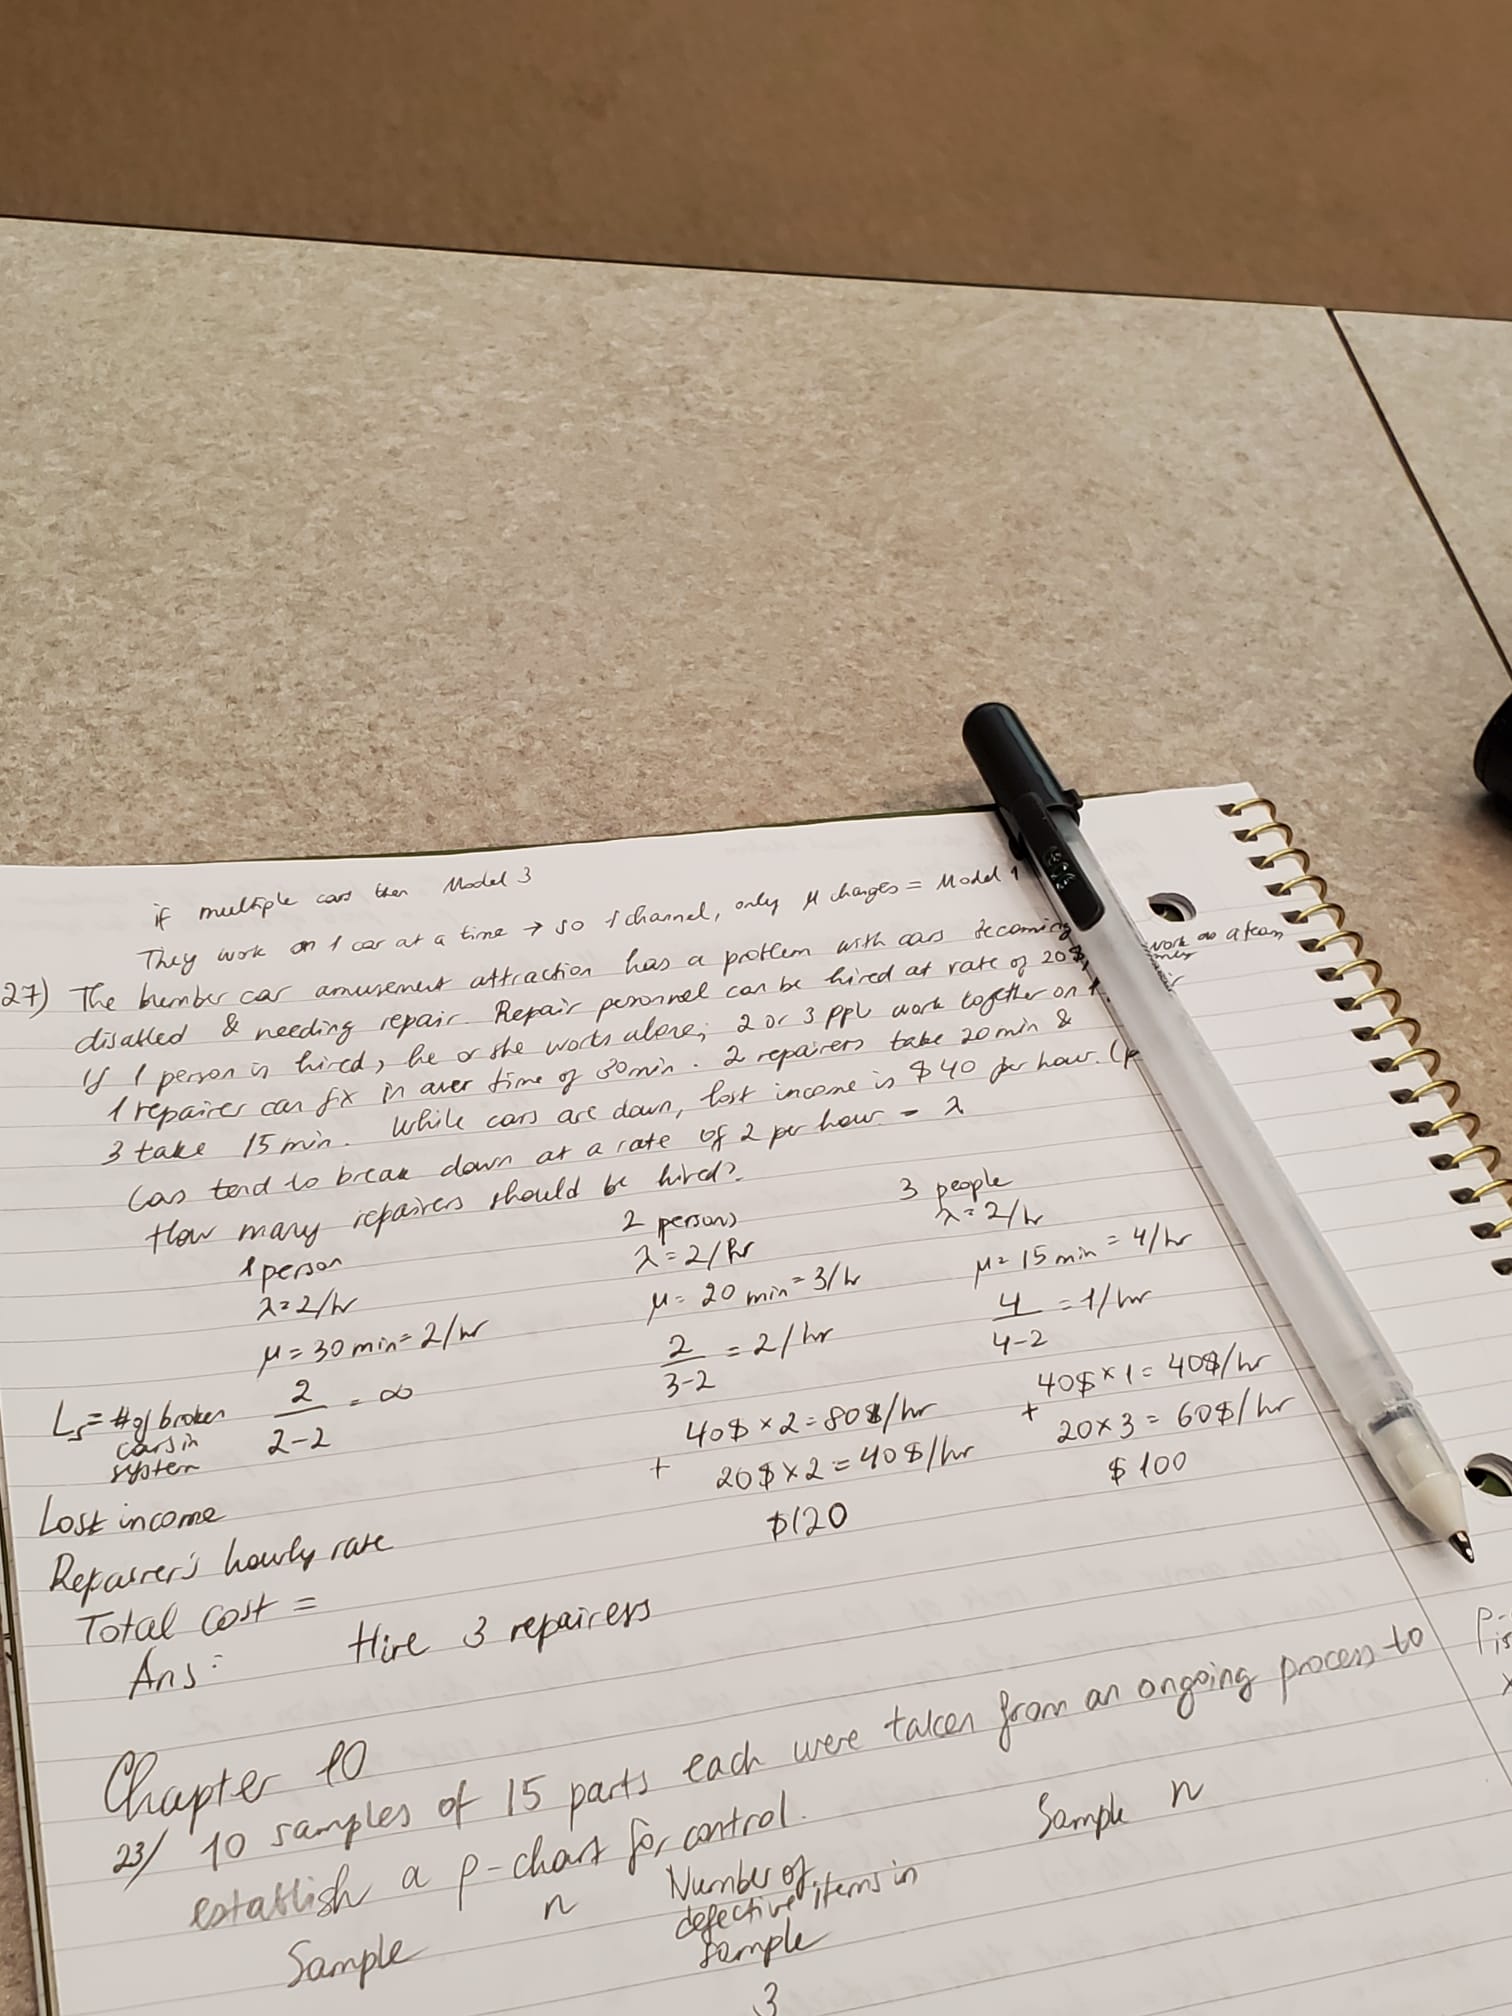 if multiple cars then Model 3
They work on 1 car at a time → so 1 channel, only μ changes = Model 1
work as a team
27) The bumber car amusement attraction has a problem with cars becoming
disabled & needing repair. Repair personnel can be hired at rate of 20$
If 1 person is hired, he or she works alone; 2 or 3 ppl work together on 1
1 repairer can fix in aver time of 30min. 2 repairers take 20min &
3 take 15 min. While cars are down, lost income is $40 per hour. (p
Cars tend to break down at a rate of 2 per hour. = λ
How many repairers should be hired?
1 person
λ=2/hr
μ=30min=2/hr
2 persons
λ=2/hr
μ=20 min=3/hr
3 people
λ=2/hr
μ=15min=4/hr
Ls=#of broken cars in system
2/2-2 = ∞
2/3-2 = 2/hr
4/4-2 = 1/hr
Lost income
40$×2=80$/hr
40$×1=40$/hr
Repairer's hourly rate
+ 20$×2=40$/hr
+ 20×3=60$/hr
Total cost =
$120
$100
Ans: Hire 3 repairers
Chapter 10
23/ 10 samples of 15 parts each were taken from an ongoing process to
establish a p-chart for control.
Sample
n
Number of
defective items in
sample
Sample
n
3